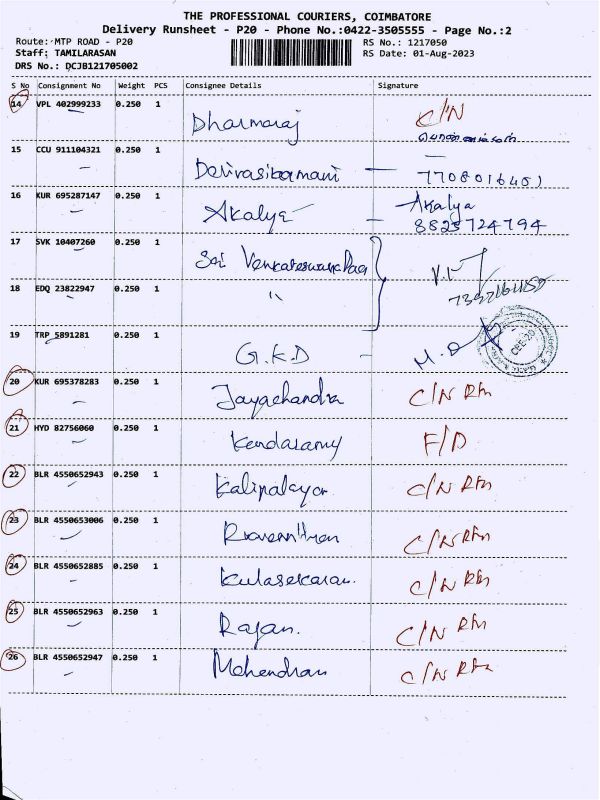 THE PROFESSIONAL COURIERS, COIMBATORE
Delivery Runsheet - P20 - Phone No.:0422-3505555 - Page No.:2
Route: MTP ROAD - P20 RS No.: 1217050
Staff: TAMILARASAN RS Date: 01-Aug-2023
DRS No.: DCJB121705002
S No Consignment No Weight PCS Consignee Details Signature
14 VPL 402999233 0.250 1 Dharmaraj C/N
15 CCU 911104321 0.250 1 Devirasibamani — 7708016401
16 KUR 695287147 0.250 1 Akalya — Akalya
8825724794
17 SVK 10407260 0.250 1 Sri Venkateswara
18 EDQ 23822947 0.250 1 "
19 TRP 5891281 0.250 1 G.K.D —
20 KUR 695378283 0.250 1 Jayachandra C/N Rtn
21 HYD 82756060 0.250 1 Kandasamy F/D
22 BLR 4550652943 0.250 1 Kalipalayor C/N Rtn
23 BLR 4550653006 0.250 1 C/N Rtn
24 BLR 4550652885 0.250 1 Kulasekaran. C/N Rtn
25 BLR 4550652963 0.250 1 Rajan. C/N Rtn
26 BLR 4550652947 0.250 1 Mahendran C/N Rtn